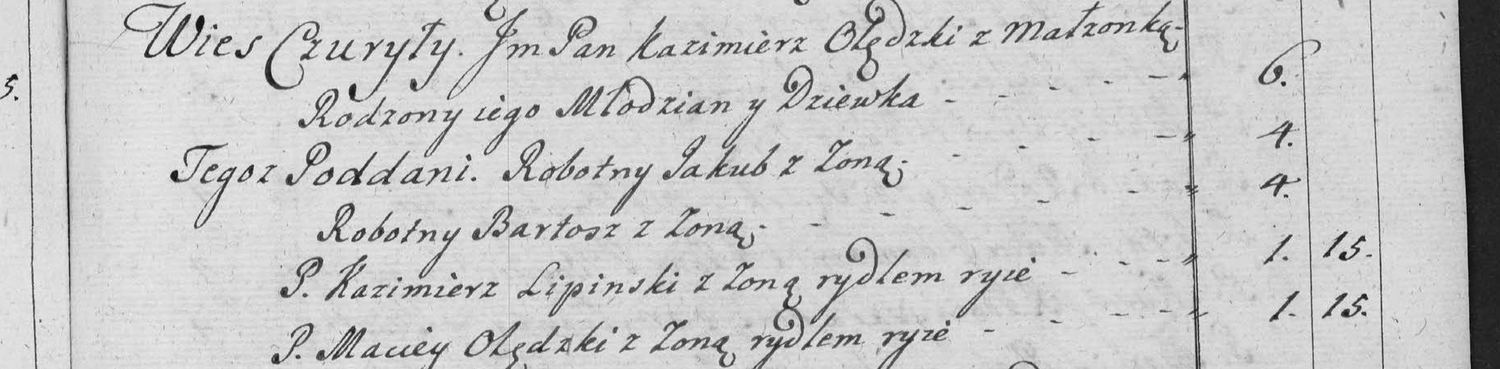 Wies Czuryły. Jm Pan Kazimierz Olędzki z Małżonką -
5. Rodzony iego Młodzian y Dziewka - - - - - " 6.
Tegoz Poddani. Robotny Jakub z Zoną. - - - - " 4.
Robotny Bartosz z Zoną. - - - - - " 4.
P. Kazimierz Lipinski z Zoną rydlem ryie - - - - " 1. 15.
P. Maciey Olędzki z Zoną rydlem ryie - - - - " 1. 15.